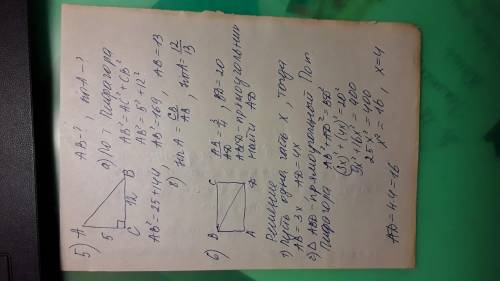 5) A
B
C
5
12
AB-?, sin A-?
а) По т Пифагора
AB² = AC² + CB²
AB² = 5² + 12²
AB² = 25 + 144, AB = 169, AB = 13
sin A = CB/AB, sin A = 12/13
6) B
C
A
AB/AD = 3/4, BD = 20
ABCD - прямоугольник
Найти AD
Решение
1) Пусть одна часть x, тогда
AB = 3x AD = 4x
2) Δ ABD - прямоугольный По т
Пифагора AB² + AD² = BD²
(3x)² + (4x)² = 20²
9x² + 16x² = 400
25x² = 400
x² = 16, x = 4
AD = 4·4 = 16